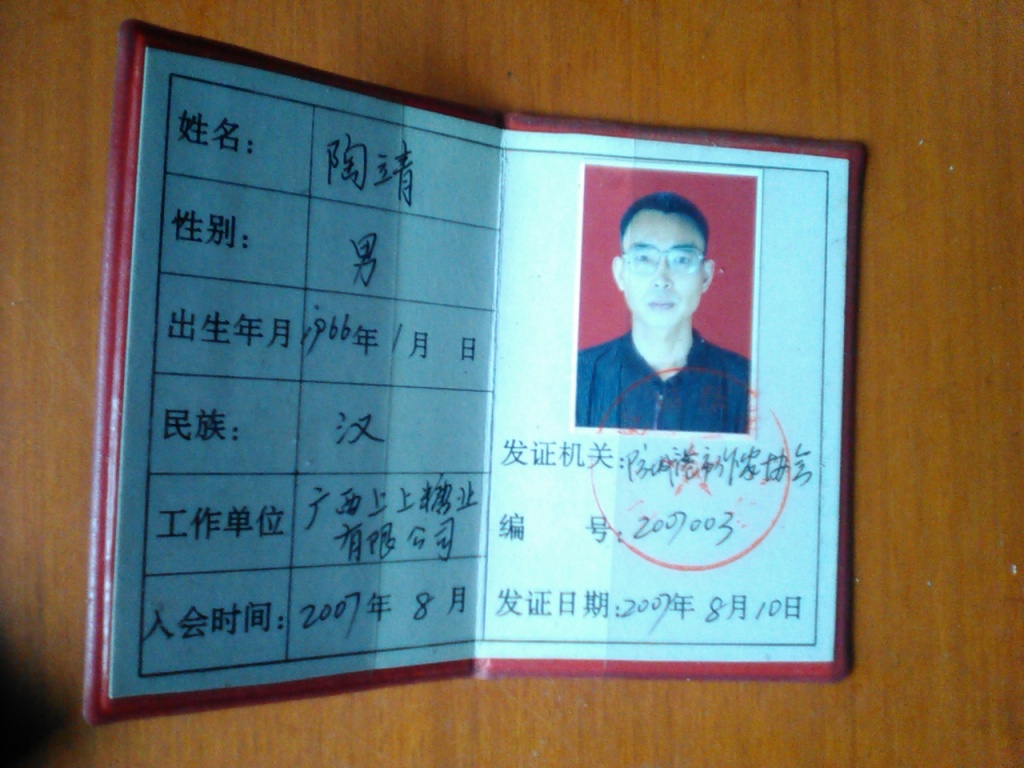 姓名： 陶靖
性别： 男
出生年月 1966年 1月 日
民族： 汉
工作单位 广西上上糖业
有限公司
入会时间： 2007年 8月
发证机关：防城港市作家协会
编 号：2007003
发证日期：2007年8月10日